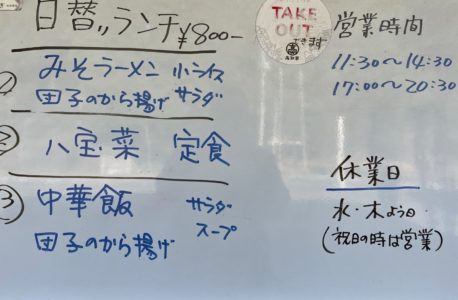 日替ランチ ¥800-
① みそラーメン 小ライス
団子のから揚げ サラダ
② 八宝菜 定食
③ 中華飯 サラダ
スープ
団子のから揚げ
TAKE
OUT
できます
営業時間
11:30〜14:30
17:00〜20:30
休業日
水・木よう日
(祝日の時は営業)